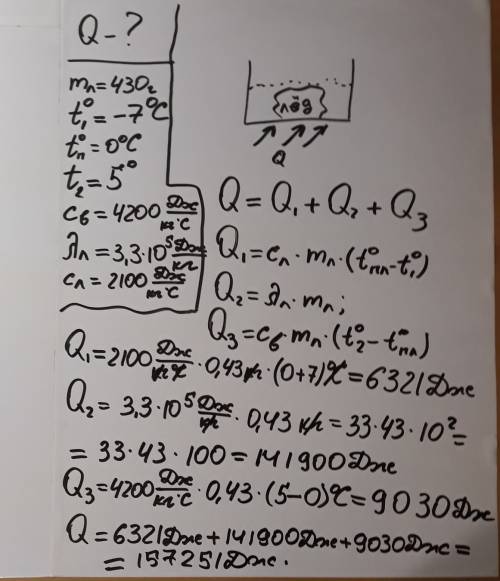 Q – ?
mл = 430г
t₁° = –7°C
tп° = 0°C
t₂ = 5°
cв = 4200 Дж/кг°C
λл = 3,3·10⁵ Дж/кг
cл = 2100 Дж/кг°C
лёд
Q
Q = Q₁ + Q₂ + Q₃
Q₁ = cл · mл · (t°пл – t₁°)
Q₂ = λл · mл ;
Q₃ = cв · mл · (t₂° – t°пл)
Q₁ = 2100 Дж/кг°C · 0,43 кг · (0+7)°C = 6321 Дж
Q₂ = 3,3·10⁵ Дж/кг · 0,43 кг = 33·43·10² =
= 33·43·100 = 141900 Дж
Q₃ = 4200 Дж/кг°C · 0,43 · (5–0)°C = 9030 Дж
Q = 6321 Дж + 141900 Дж + 9030 Дж =
= 157251 Дж.